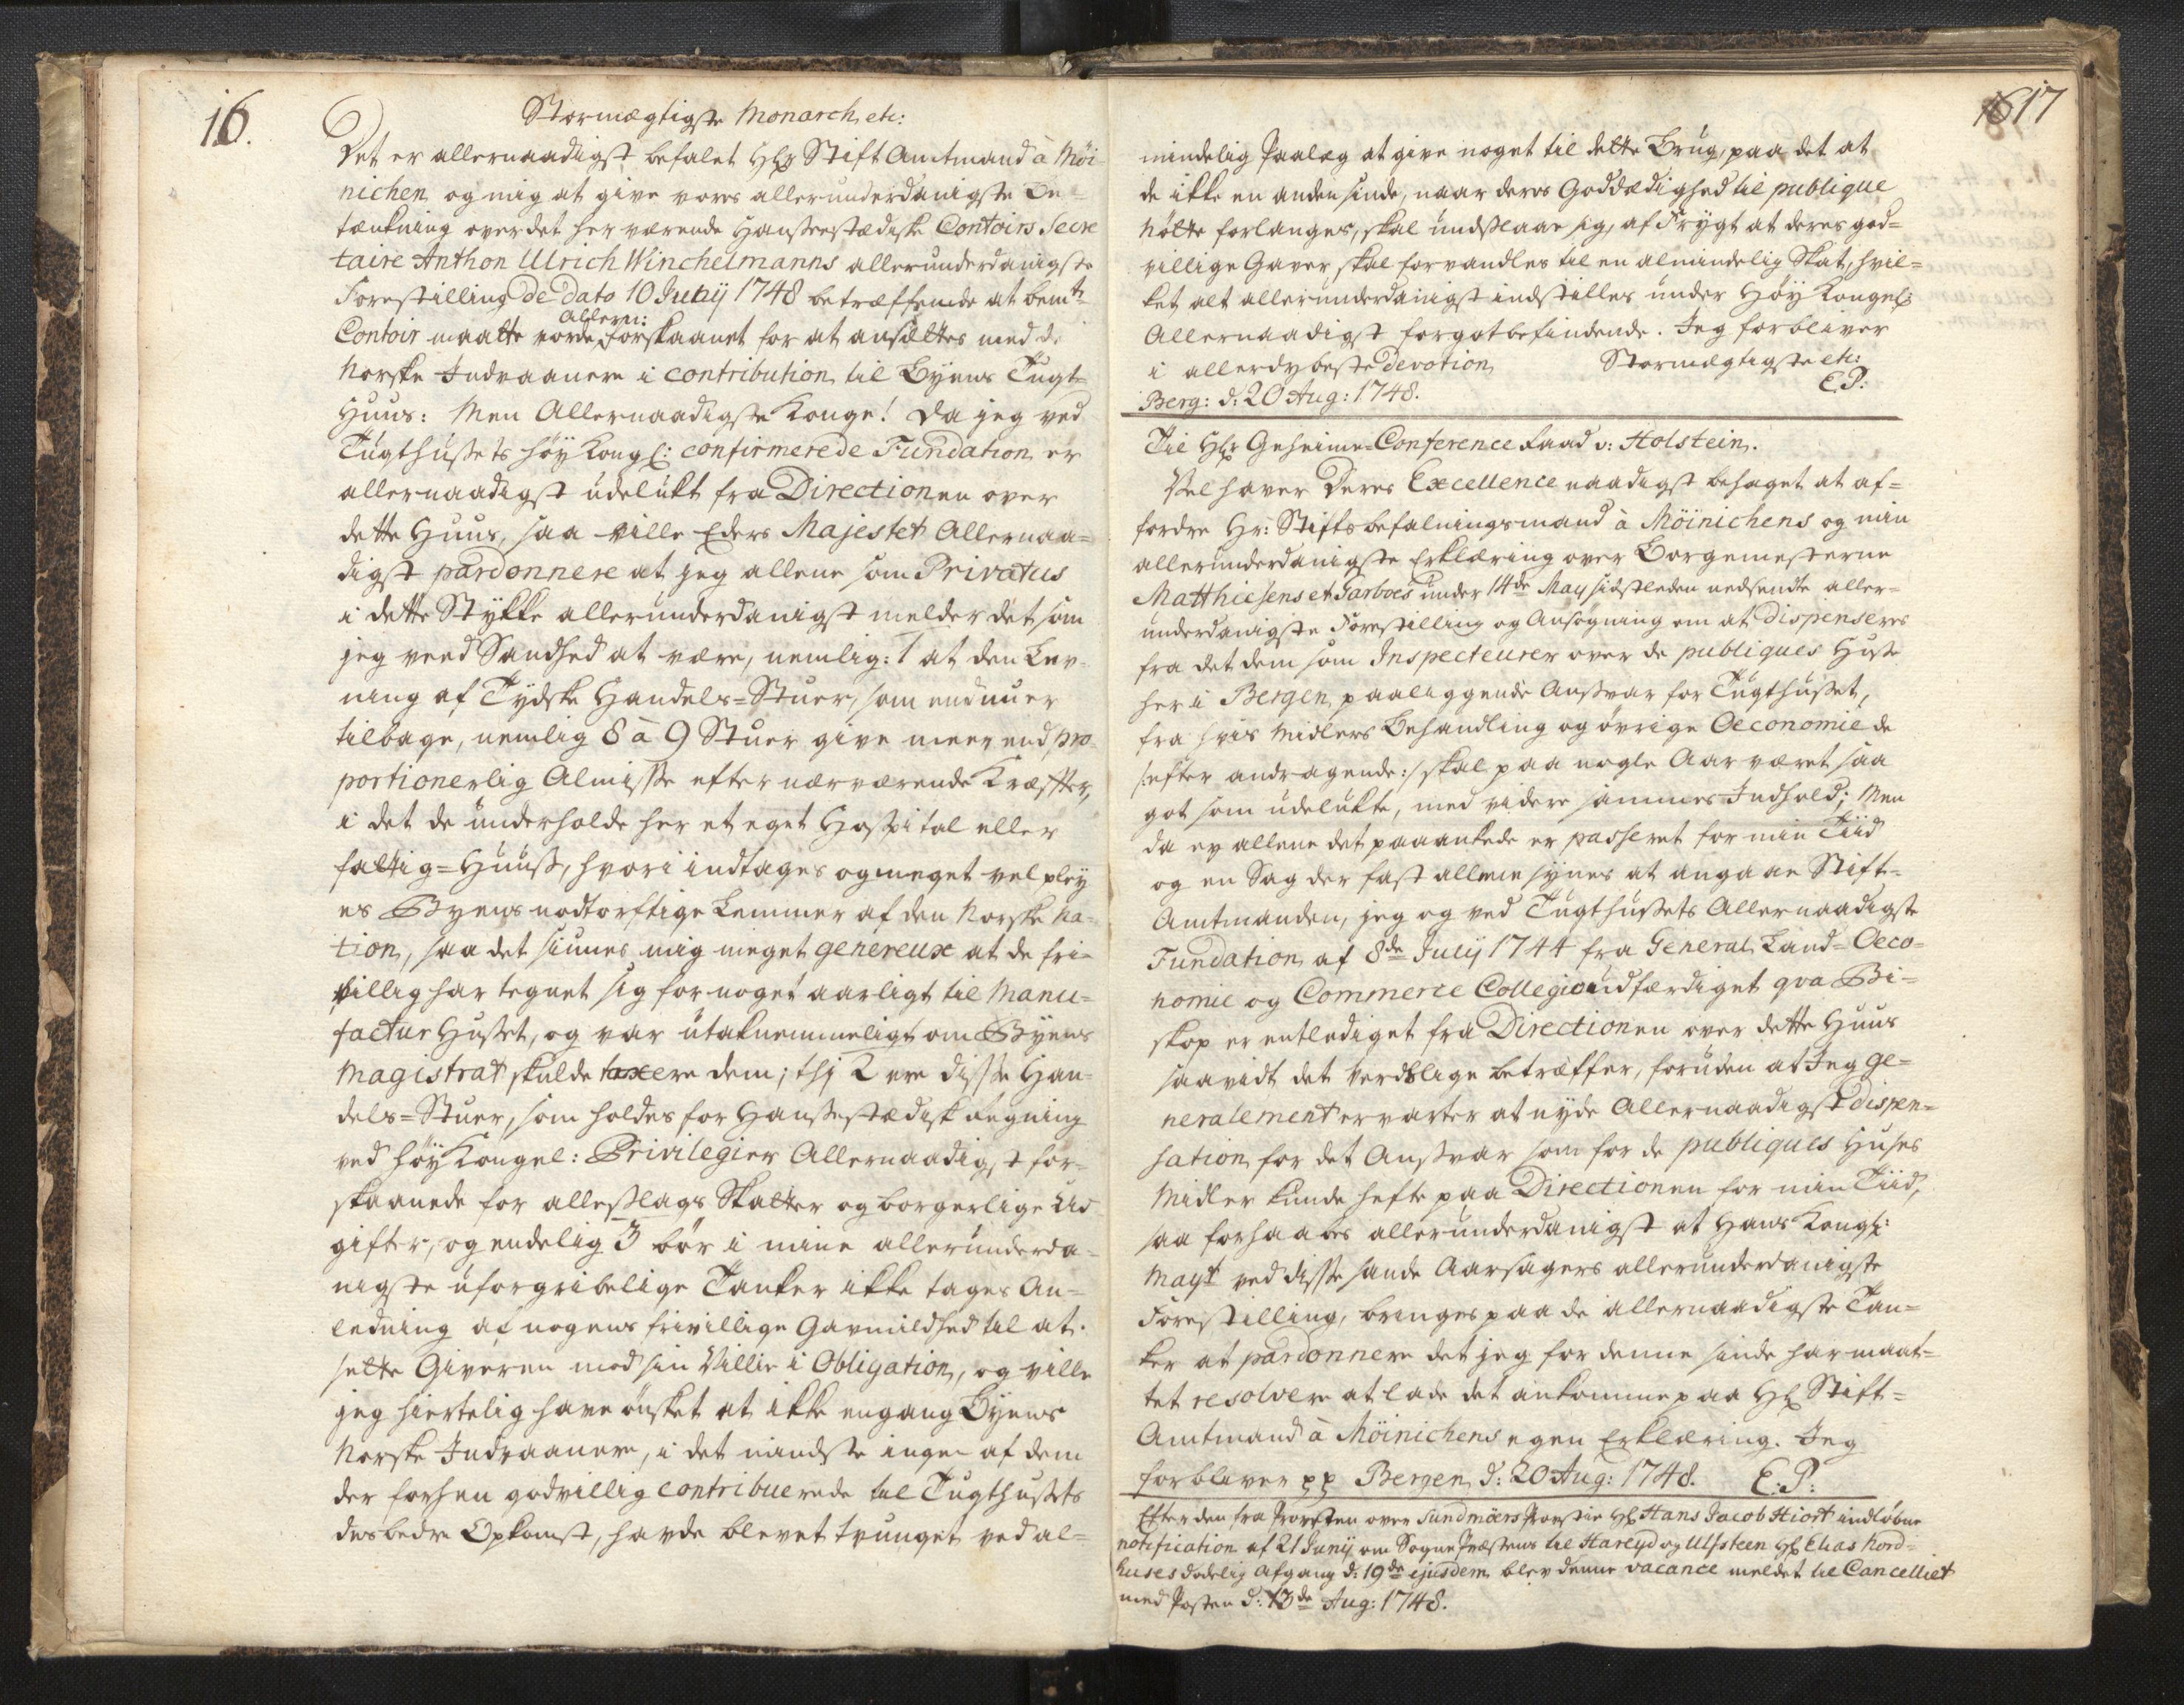 16.
Stormægtigste Monarch etc:
Det er allernaadigst befalet Hr Stift Amtmand à Möi
nichen og mig at give vores allerunderdanigste Be=
tænkning over det her værende Hansestædiske Contoirs Secre
taire Anthon Ulrich Winchelmanns allerunderdanigste
Forestilling de dato 10 Junij 1748 betræffende at bemte
Allern:
Contoir maatte vorde forskaanet for at ansættes med de
Norske Indvaanere i contribution til Byens Tugt
Huus: Men Allernaadigste Konge! da jeg ved
Tugthusets höy Kongl: confirmerede Fundation er
allernaadigst udelukt fra Directionen over
dette Huus, saa ville Eders Majestet Allernaa=
digst pardonnere at jeg allene som Privatus
i dette Stykke allerunderdanigst melder det som
jeg veed Sandhed at være, nemlig: 1 at den Lev=
ning af Tydske Handels=Stuer, som endnu er
tilbage, nemlig 8 à 9 Stuer give meer end pro=
portionerlig Almisse efter nærværende Kræfter,
i det de underholde her et eget Hospital eller
fattig=Huus, hvori indtages og meget vel pley
es Byens nodtorftige Lemmer af den Norske Na=
tion, saa det siunes mig meget genereux at de fri=
villig har tegnet sig for noget aarligt til Manu=
factur Huset, og var utaknemmeligt om Byens
Magistrat skulde taxere dem; thi 2 ere disse Han=
dels=Stuer, som holdes for Hansestædisk Regning
ved höy Kongel: Privilegier Allernaadigst for=
skaanede for alleslags Skatter og borgerlige Ud
gifter, og endelig 3 bör i mine allerunderda=
nigste uforgribelige Tanker ikke tages An=
ledning af nogens frivillige Gavmildhed til at
sette Giveren mod sin Villie i Obligation, og ville
jeg hiertelig have önsket at ikke engang Byens
Norske Indvaanere, i det mindste ingen af dem
der forhen godvillig contribuerede til Tugthusets
des bedre Opkomst, havde blevet tvunget ved al=
1617
mindelig Paalæg at give noget til dette Brug, paa det at
de ikke en anden sinde, naar deres Goddædighed til publique
Nötte forlanges, skal undslaae sig, af Frygt at deres god=
villige Gaver skal forvandles til en almindelig Skat, hvil=
ket alt allerunderdanigst indstilles under Höy Kongel:
Allernaadigst forgotbefindende. Jeg forbliver
i allerdybeste devotion Stormægtigste etc:
Berg: d: 20 Aug: 1748. E.P:
Til Hr Geheime=Conference Raad v: Holstein.
Vel haver Deres Excellence naadigst behaget at af=
fordre Hr: Stiftsbefalningsmand à Möinichens og min
allerunderdanigste Erklæring over Borgemesterne
Matthiesens et Garboes under 14de May sidstleden nedsendte aller=
underdanigste Forestilling og Ansögning om at dispenseres
fra det dem som Inspecteurer over de publiques Huse
her i Bergen paaliggende Ansvar for Tugthuset,
fra hvis Midlers Behandling og övrige Oeconomie de
/:efter andragende:/ skal paa nogle Aar været saa
got som udelukte, med videre sammes Indhold; Men
da ey allene det paaankede er passeret for min Tiid
og en Sag der fast allene synes at angaae Stift=
Amtmanden, jeg og ved Tugthusets Allernaadigste
Fundation af 8de Julij 1744 fra General Land=Oeco=
nomie og Commerce Collegio udfærdiget qva Bi=
skop er entlediget fra Directionen over dette Huus
saavidt det Verdslige betræffer, foruden at Jeg ge=
neralement ervarter at nyde Allernaadigst dispen=
sation for det Ansvar som for de publiques Huses
Midler kunde hefte paa Directionen for min Tiid,
saa forhaabes allerunderdanigst at Hans Kongl:
Mayt ved disse sande Aarsagers allerunderdanigste
Forestilling, bringes paa de allernaadigste Tan=
ker at pardonnere det jeg for denne sinde har maat=
tet resolvere at lade det ankomme paa Hr Stift=
Amtmand à Möinichens egen Erklæring. Jeg
forbliver pp Bergen d: 20 Aug: 1748. E.P:
Efter den fra Provsten over Sundmörs Provstie Hr Hans Jacob Hiort indlöbne
notification af 21 Junij om Sogne Præstens til Hareyd og Ulfsteen Hr Elias Nord=
huses dödelig Afgang d: 19de ejusdem blev denne vacance meldet til Cancelliet
med Posten d: 13de Aug: 1748.